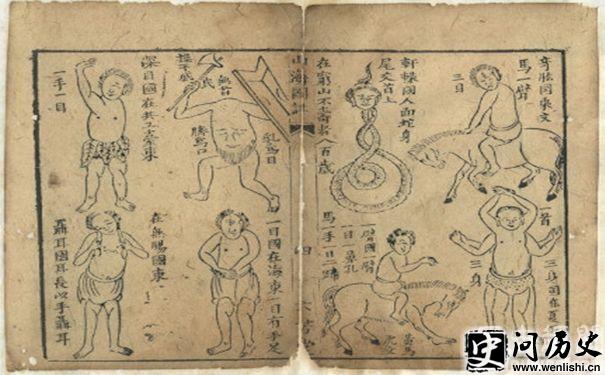 奇肱國乘文
馬一臂
三目
軒轅國人面蛇身
尾交首上
在窮山不壽者八百歲
一首
三身
三身國在夏
一臂國一臂
一目一鼻孔
馬一手目二蹄
黃馬
虎文
山海
四
乳為目
臍為口
無首
民
操干戚
深目國在共工臺東
一手一目
一目國在海東一目有手足
在無腸國東
聶耳國耳長以手聶耳
史问历史
www.wenlishi.cn